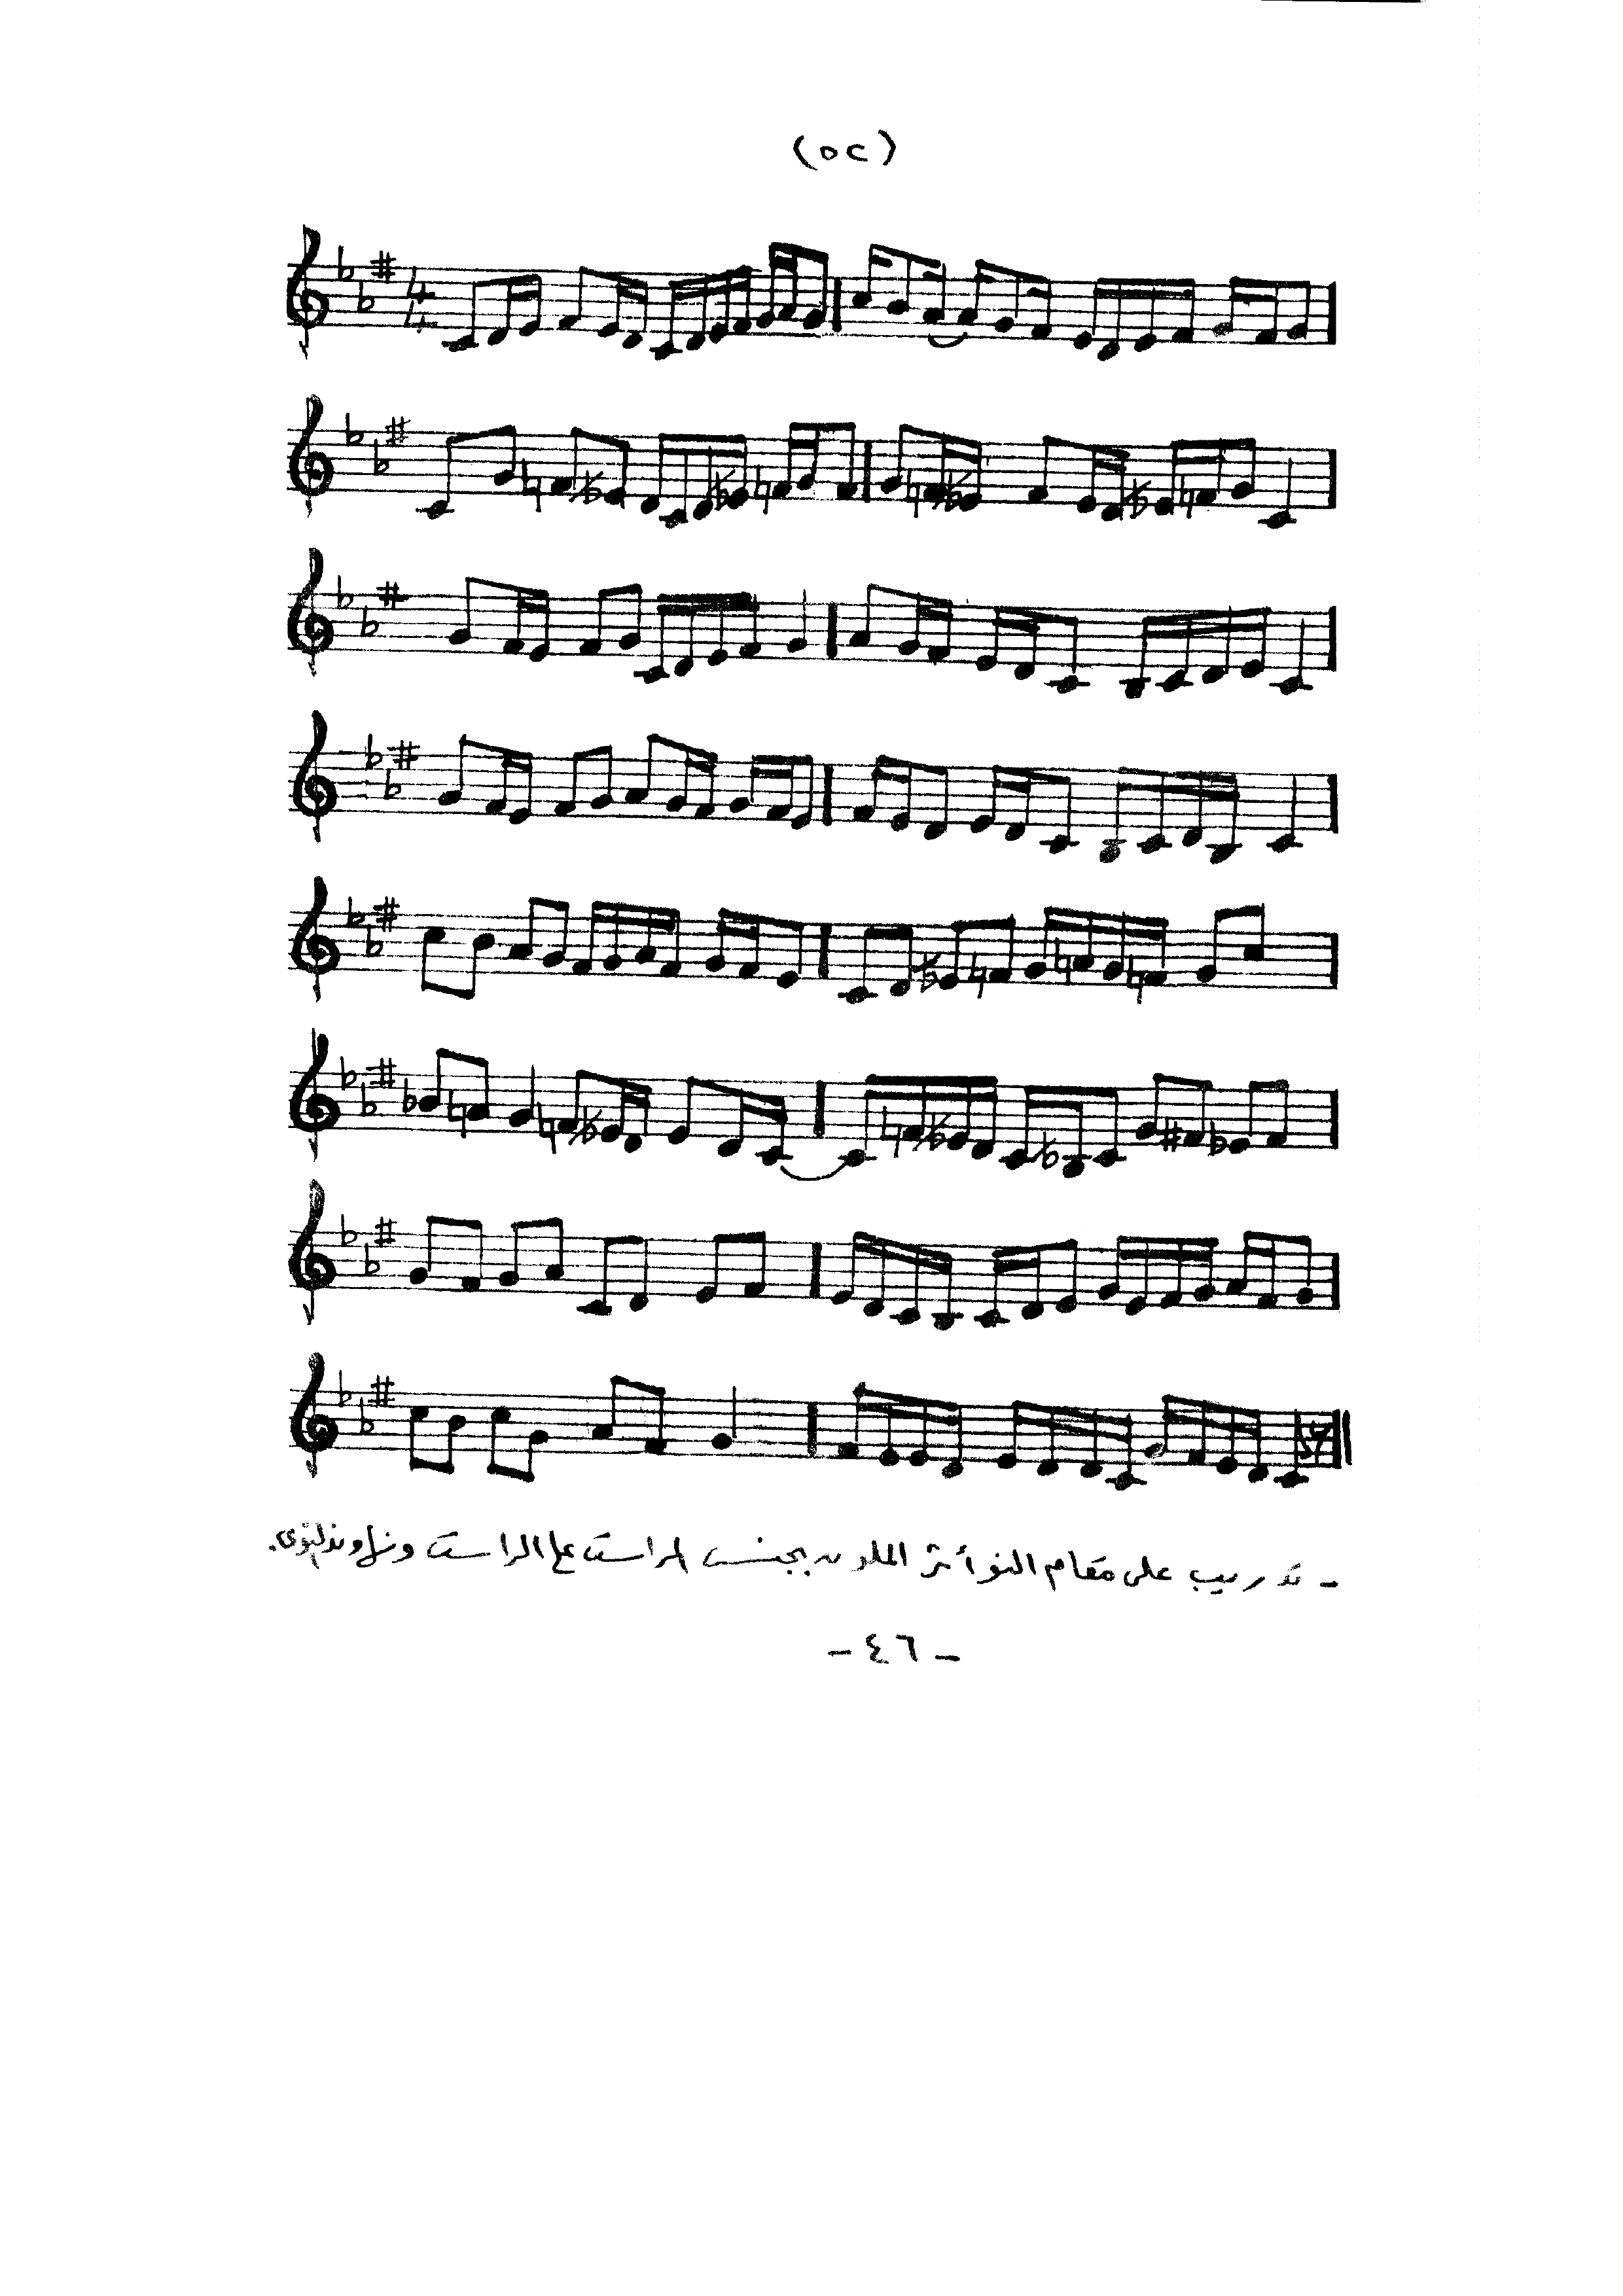 (٥٢)
- تدريب على مقام النوأثر الملون بجنس الراست على الراست ونهاوند النوى.
- ٤٦ -